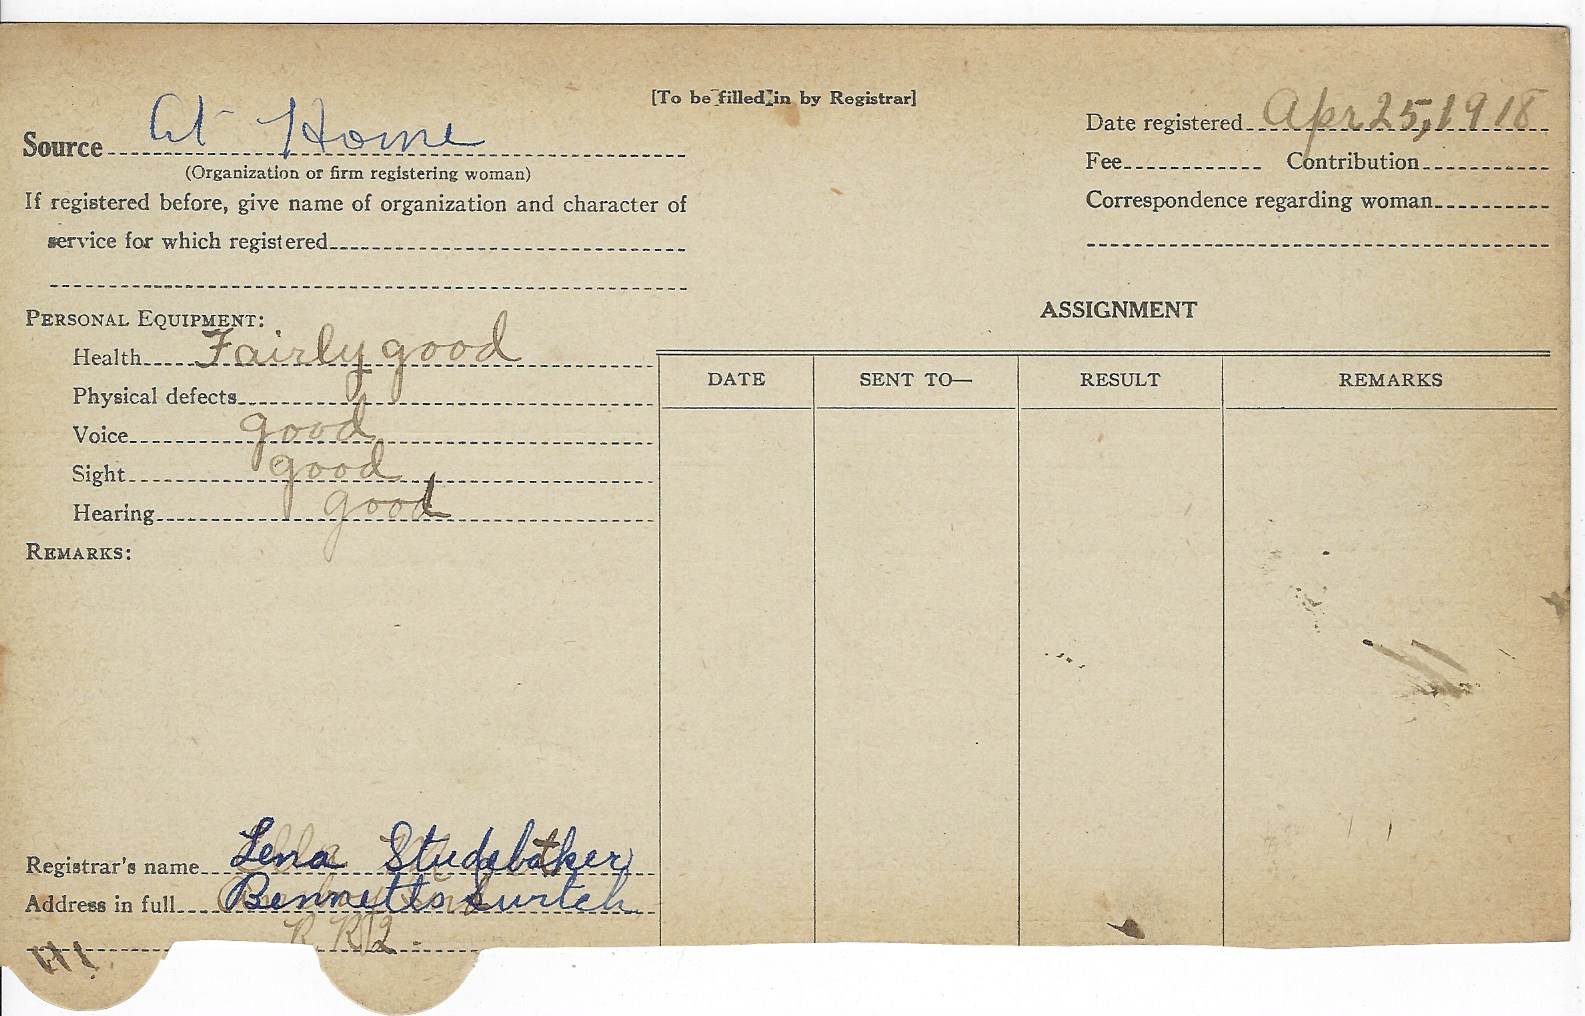 [To be filled in by Registrar]
Source At Home
(Organization or firm registering woman)
If registered before, give name of organization and character of
service for which registered
Date registered Apr 25, 1918
Fee Contribution
Correspondence regarding woman
PERSONAL EQUIPMENT:
Health Fairly good
Physical defects
Voice good
Sight good
Hearing good
REMARKS:
ASSIGNMENT
DATE SENT TO— RESULT REMARKS
Registrar's name Lena Studebaker
Address in full Bennetts Swrtch
R R 2